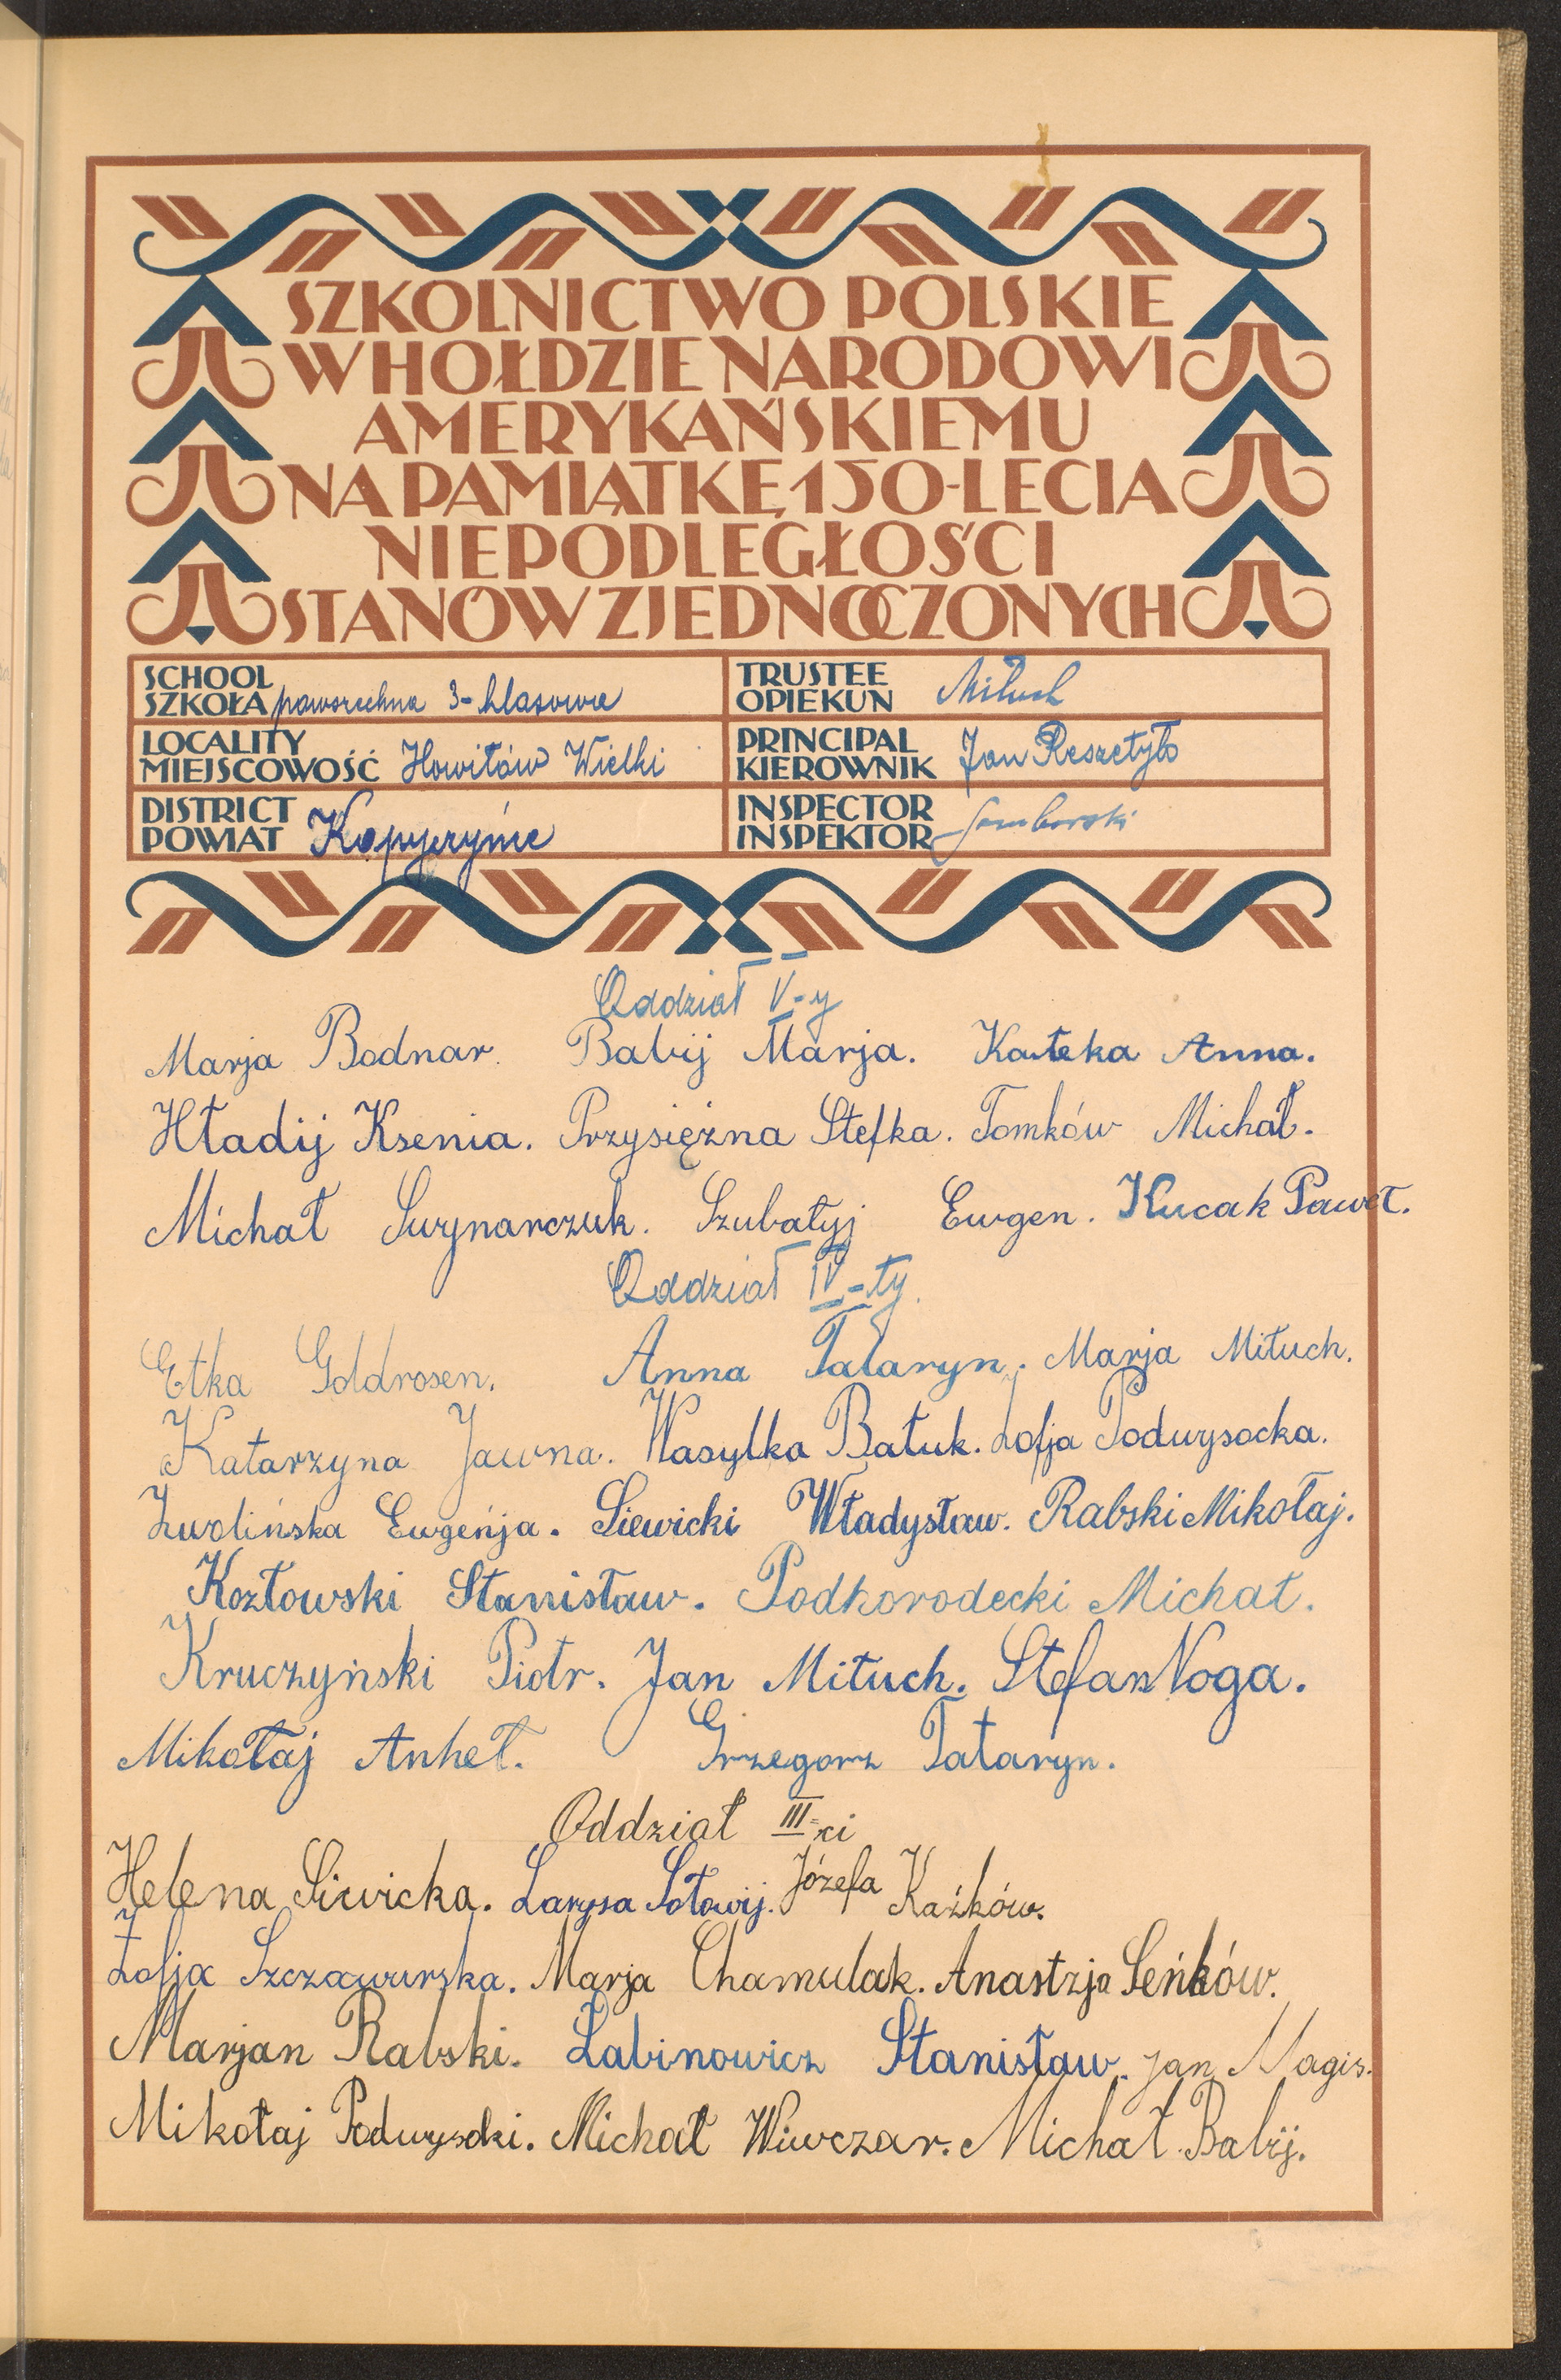 SZKOLNICTWO POLSKIE
W HOŁDZIE NARODOWI
AMERYKAŃSKIEMU
NA PAMIĄTKĘ 150-LECIA
NIEPODLEGŁOŚCI
STANÓW ZJEDNOCZONYCH
SCHOOL
SZKOŁA powszechna 3-klasowa
TRUSTEE
OPIEKUN Mituch
LOCALITY
MIEJSCOWOŚĆ Howiłów Wielki
PRINCIPAL
KIEROWNIK Jan Reszetyło
DISTRICT
POWIAT Kopyczyńce
INSPECTOR
INSPEKTOR Samborski
Oddział V-y
Marja Bodnar. Babij Marja. Kasteka Anna.
Hładij Ksenia. Przysiężna Stefka. Tomków Michał.
Michał Swynarczuk. Szubatyj Ewgen. Kucak Paweł.
Oddział IV-ty.
Etka Goldrosen. Anna Tataryn. Marja Mituch.
Katarzyna Jawna. Wasylka Batuk. Zofja Podwysocka.
Zwolińska Ewgeńja. Siewicki Władysław. Rabski Mikołaj.
Kozłowski Stanisław. Podhorodecki Michał.
Kruczyński Piotr. Jan Mituch. Stefan Noga.
Mikołaj Anheł. Grzegorz Tataryn.
Oddział III-ci
Helena Siwicka. Larysa Sołowij. Józefa Kaźków.
Zofja Szczawurska. Marja Chamulak. Anastzja Seńków.
Marjan Rabski. Łabinowicz Stanisław. Jan Magis.
Mikołaj Podwysocki. Michał Wiwczar. Michał Babij.